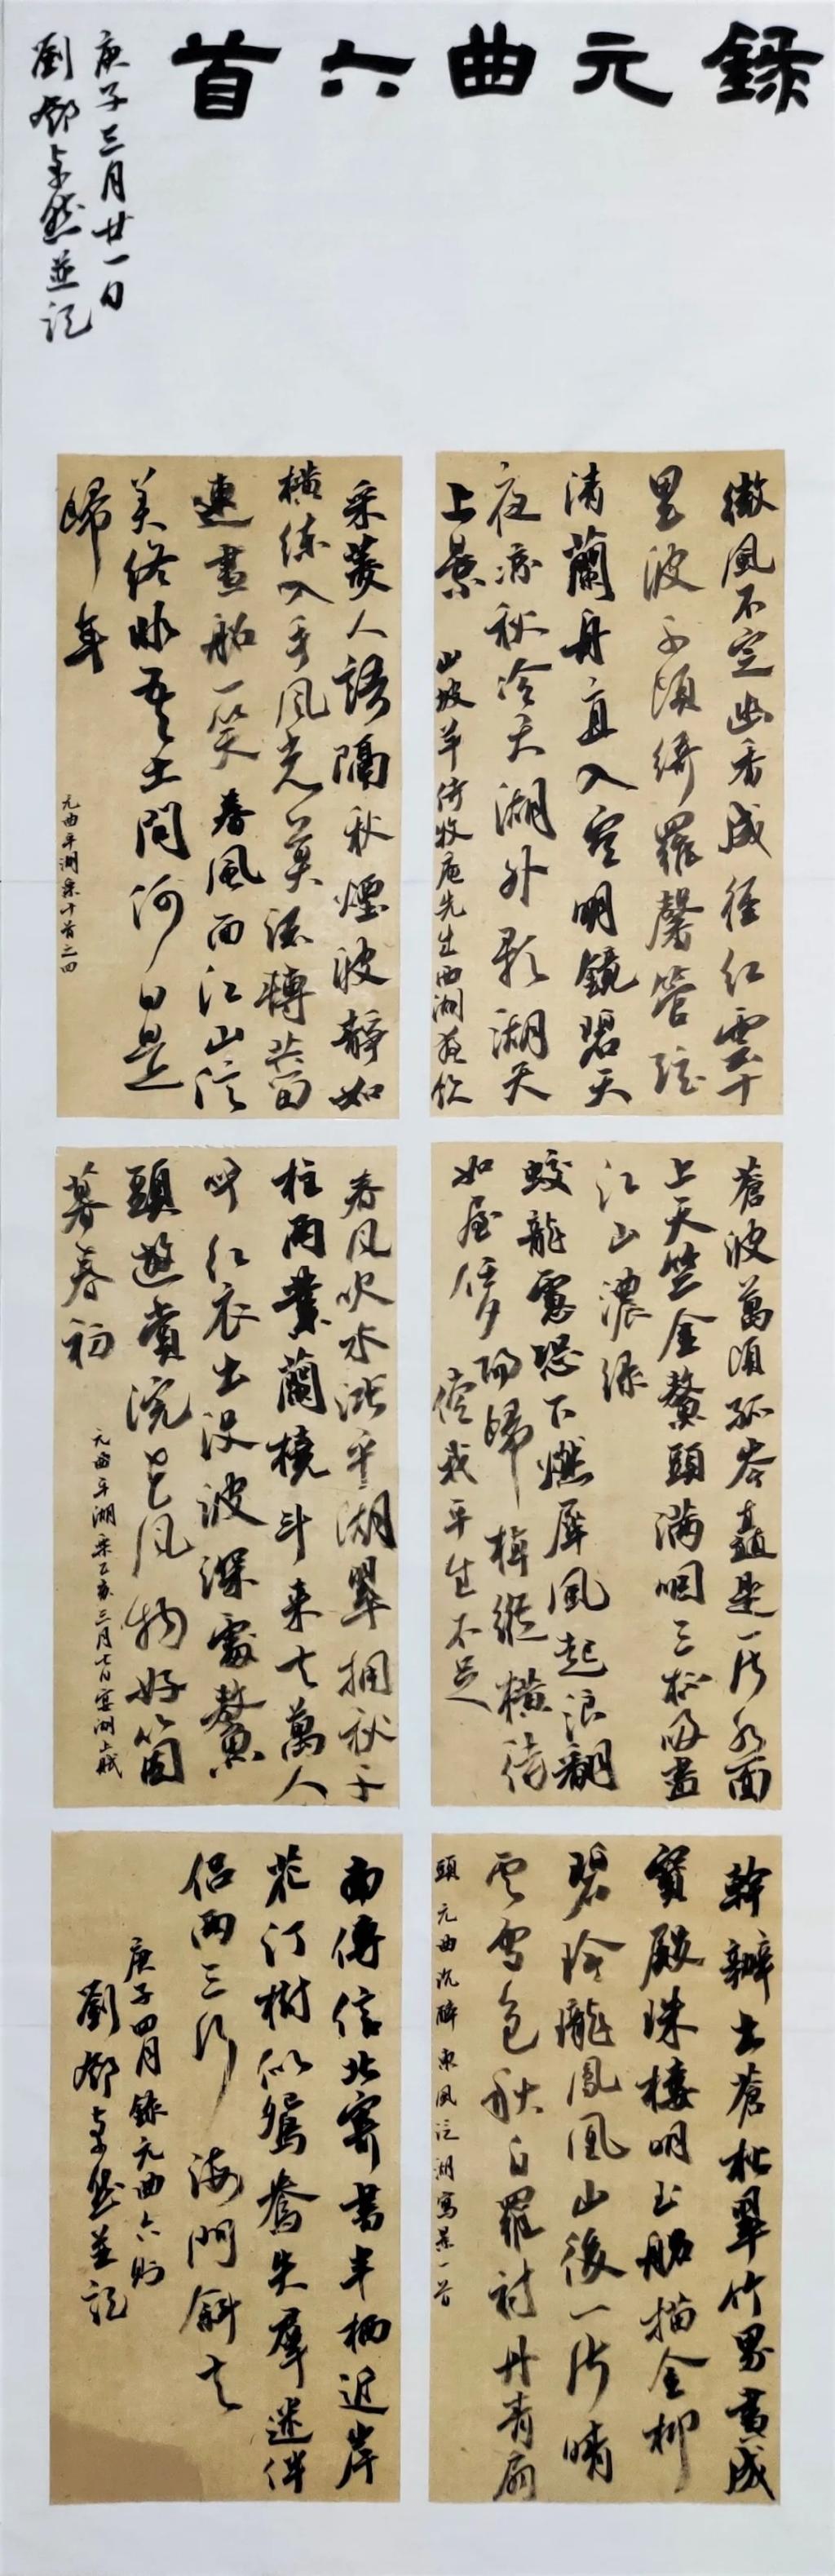 錄元曲六首
庚子三月廿一日
劉鄧卓然並記
微風不定幽香成徑紅雲十
里波千頃綺羅馨管弦
清蘭舟直入空明鏡碧天
夜涼秋冷天湖外影湖天
上景 山坡羊侍牧庵先生西湖夜飲
采菱人語隔秋煙波靜如
橫練入手風光莫流轉共留
連畫船一笑春風面江山信
美終非吾土問何日是
歸年
元曲平湖樂十首之四
蒼波萬頃孤岑矗是一片水面
上天竺金鰲頭滿咽三杯吸盡
江山濃綠
蛟龍慮恐下燃犀風起浪翻
如屋任夕陽歸棹縱橫待
償我平生不足
春風吹水漲平湖翠擁秋千
柱兩葉蘭橈斗來去萬人
呼紅衣出沒波深處鰲
頭遊賞浣花風物好箇
暮春初
元曲平湖樂乙亥三月七日宴湖上賦
幹辦出蒼松翠竹界畫成
寶殿珠樓明玉船描金柳
碧玲瓏鳳凰山後一片晴
雲雪色秋白羅襯丹青扇
頭 元曲沉醉東風泛湖寫景一首
南傳信北寄書半栖近岸
花汀樹似鴛鴦失群迷伴
侶兩三行海門斜去
庚子四月錄元曲六則
劉鄧卓然並記